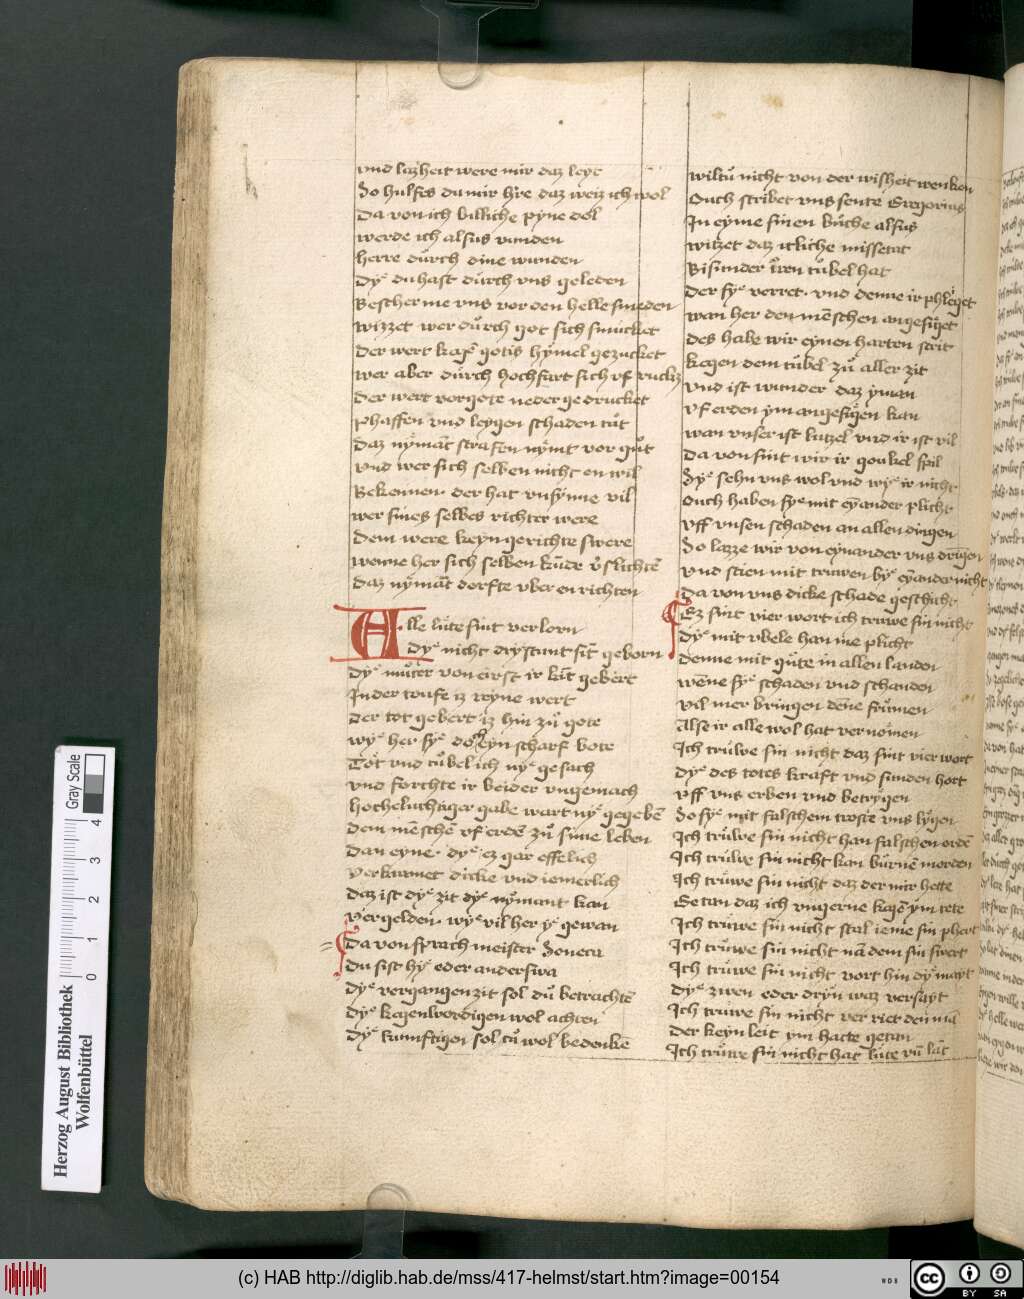 vnd lazheit were mir daz leyt
So hulfes du mir h're daz weiz ich wol
Da von ich billiche pyne dol
werde ich alsus vunden
herre durch dine wunden
Dy͛ du hast durch vns geleden
Bescherme vns vor den helle smeden
wizzet wer durch got sich smucket
Der wert kegē gotis hymel gezucket
wer aber durch hochfart sich vf rucket
Der wert vor gote neder gedrucket
phaffen vnd leygen schaden tut
Daz nymāt strafen nymt vor gut
vnd wer sich selben nicht en wil
Bekennen . der hat vnsynne vil
wer sines selbes richter were
Dem were keyn gerichte swere
wenne her sich selben kūde v͛slichtē
Daz nymāt dorfte vber en richten
Alle lute sint verlorn
Dy͛ nicht drystunt sīt geborn
Dy͛ muter von eirst ir kīt gebert
In der toufe iz reyne wert
Der tot gebert iz hin zu gote
wy͛ her sy͛ doch eyn scharf bote
Tot vnd tubel ich ny͛ gesach
vnd forchte ir beider vngemach
hocheluchtiger gabe wart ny͛ gegebē
Dem mēschē vf erdē zu sime leben
Dan eyne . dy͛ ez gar effelich
verkurnet dicke vnd iemerlich
Daz ist dy͛ zit dy͛ nymant kan
vergelden . wy͛ vil her y͛ gewan
Da von sprach meister Seneca
Du sist hy͛ eder anderswa
Dy͛ vergangen zit sol du betrachtē
Dy͛ kegenwordigen wol achten
Dy͛ kumftigen sol tu wol bedenkē
wiltu nicht von der wisheit wenken
Ouch scribet vns sente Gregorius
In eyme sinen buche alsus
wizzet daz itliche missetat
Bisunder iren tubel hat
Der sy͛ verret . vnd denne ir phleget
wan her den mēschen angesiget
Des habe wir eynen harten strit
kegen dem tubel zu aller zit
vnd ist wunder daz yman
vf erden ym angesigen kan
wan vnser ist lutzel vnd ir ist vil
Da von sint wir ir goukel spil
Sy͛ sehn vns wol vnd wy͛ ir nicht
Ouch haben sy͛ mit eyander plicht
vff vnsen schaden an allen dingen
So lazze wir von eynander vns dringen
vnd stien mit truwen by͛ eyander nicht
Da von vns dicke schade geschicht
Ez sint vier wort ich truwe sin nicht
Dy͛ mit vbele han me plicht
Denne mit gute in allen landen
wēne sy͛ schaden vnd schanden
vil mer bringen dēne frumen
Alse ir alle wol hat vernomen
Ich truwe sin nicht daz sint vier wort
Dy͛ des totes kraft vnd sunden hort
vff vns erben vnd betrygen
So sy͛ mit falschem troste vns lygen
Ich truwe sin nicht han falschen ordē
Ich truwe sin nicht kan burnē morden
Ich truwe sin nicht daz der mir hette
Getan daz ich vngerne kegē ym tete
Ich truwe sin nicht stal ieme sin phert
Ich truwe sin nicht nā dem sin swert
Ich truwe sin nicht vort hin dy͛ mayt
Dy͛ zwen eder dryn waz versayt
Ich truwe sin nicht ver riet den mā
Der keyn leit ym hatte getan
Ich truwe sin nicht hat lute vn̄ lāt
Herzog August Bibliothek
Wolfenbüttel
0 1 2 3 4
Gray Scale
(c) HAB http://diglib.hab.de/mss/417-helmst/start.htm?image=00154
WDB
cc
BY SA